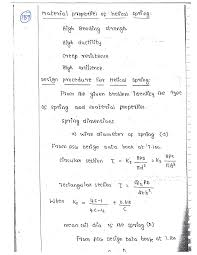 189
material properties of helical spring:
High breaking strength
High ductility
Creep resistance
High resilience
Design procedure for Helical spring:
From the given problem identify the type
of spring and material properties
Spring dimensions
a) wire diameter of spring (d)
From PSG design data book at 7.100
Circular section τ = Ks 8PD/πd³ = Ks 8PC/πd²
Rectangular section τ =
When Ks = 4C-1/4C-4 + 0.615/C
mean coil dia of the spring (D)
From PSG design data book at 7.100